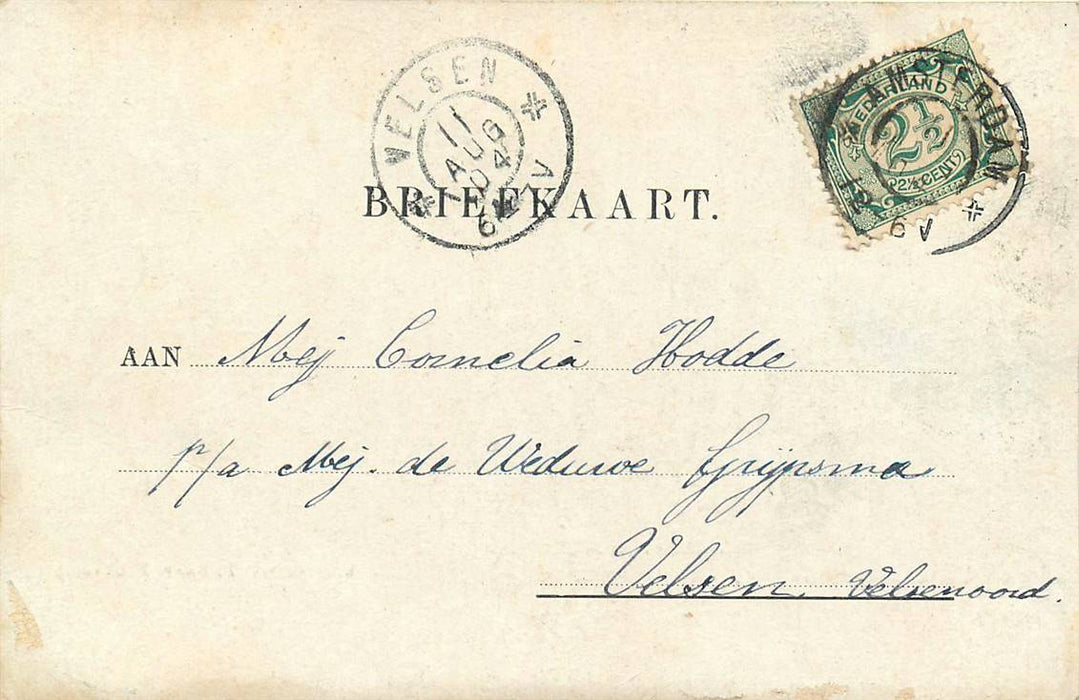 VELSEN
11
AUG
04
6-7V
AMSTERDAM
12
6 V
NEDERLAND
2½
(2½ CENT)
BRIEFKAART.
AAN Mej Cornelia Hodde
p/a Mej. de Weduwe Grijpsma
Velsen. Velsenoord.